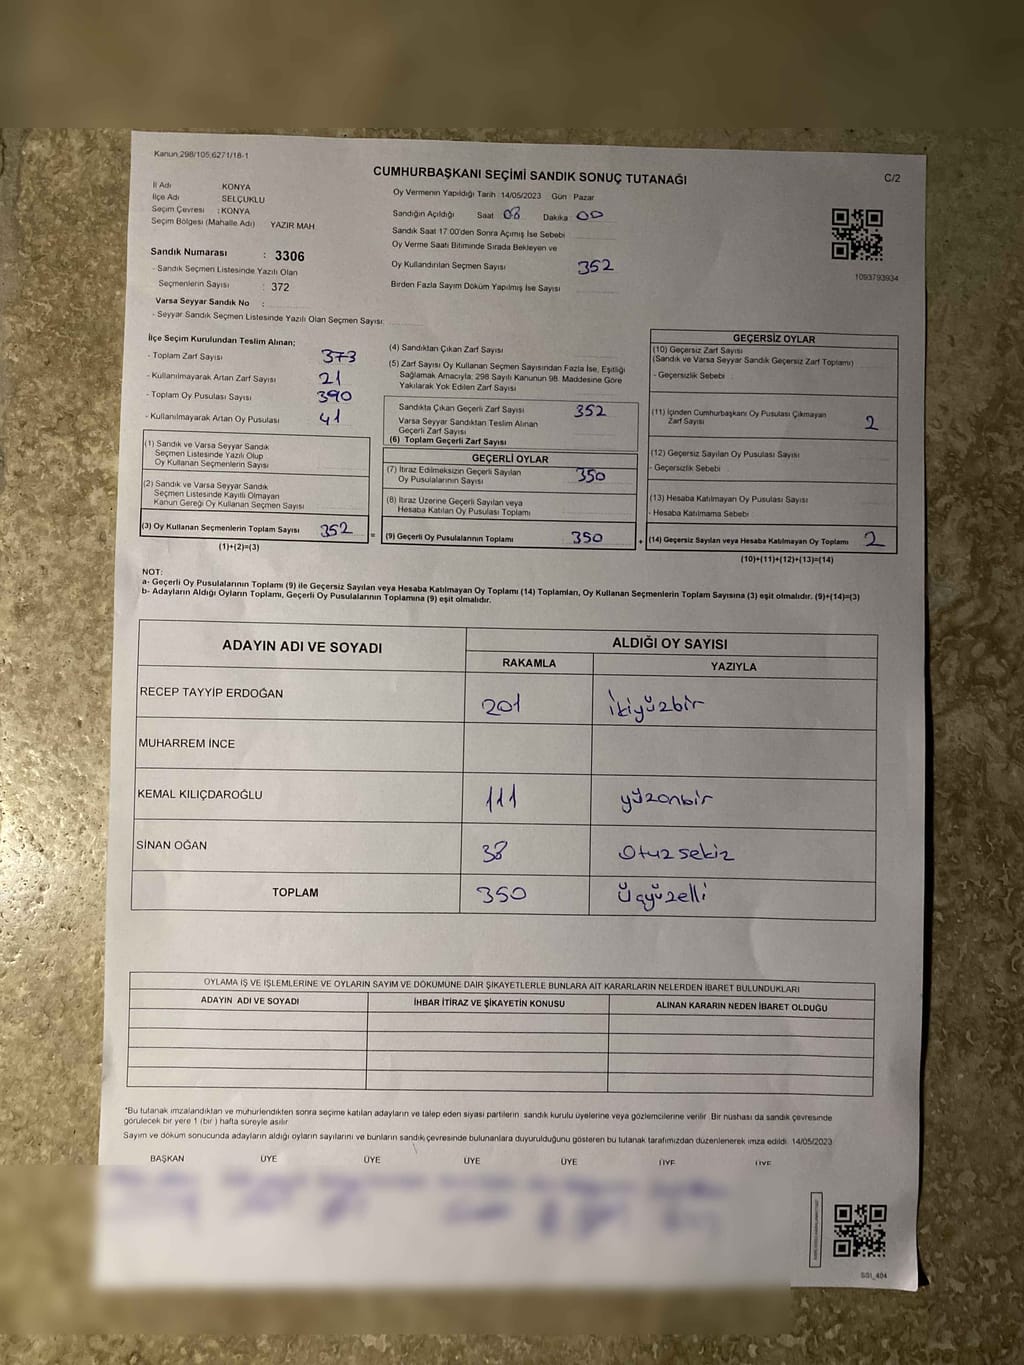 Kanun:298/105;6271/18-1
CUMHURBAŞKANI SEÇİMİ SANDIK SONUÇ TUTANAĞI
C/2
İl Adı KONYA
İlçe Adı SELÇUKLU
Seçim Çevresi : KONYA
Seçim Bölgesi (Mahalle Adı) YAZIR MAH
Sandık Numarası : 3306
- Sandık Seçmen Listesinde Yazılı Olan
Seçmenlerin Sayısı : 372
Varsa Seyyar Sandık No :
- Seyyar Sandık Seçmen Listesinde Yazılı Olan Seçmen Sayısı:
Oy Vermenin Yapıldığı Tarih : 14/05/2023 Gün : Pazar
Sandığın Açıldığı Saat : 08 Dakika : 00
Sandık Saat 17:00'den Sonra Açımış İse Sebebi
Oy Verme Saati Bitiminde Sırada Bekleyen ve
Oy Kullandırılan Seçmen Sayısı 352
Birden Fazla Sayım Döküm Yapılmış İse Sayısı
1093793934
İlçe Seçim Kurulundan Teslim Alınan;
- Toplam Zarf Sayısı 373
- Kullanılmayarak Artan Zarf Sayısı 21
- Toplam Oy Pusulası Sayısı 390
- Kullanılmayarak Artan Oy Pusulası 41
(1) Sandık ve Varsa Seyyar Sandık
Seçmen Listesinde Yazılı Olup
Oy Kullanan Seçmenlerin Sayısı
(2) Sandık ve Varsa Seyyar Sandık
Seçmen Listesinde Kayıtlı Olmayan
Kanun Gereği Oy Kullanan Seçmen Sayısı
(3) Oy Kullanan Seçmenlerin Toplam Sayısı 352
(1)+(2)=(3)
(4) Sandıktan Çıkan Zarf Sayısı
(5) Zarf Sayısı Oy Kullanan Seçmen Sayısından Fazla İse, Eşitliği
Sağlamak Amacıyla; 298 Sayılı Kanunun 98. Maddesine Göre
Yakılarak Yok Edilen Zarf Sayısı
Sandıkta Çıkan Geçerli Zarf Sayısı 352
Varsa Seyyar Sandıktan Teslim Alınan
Geçerli Zarf Sayısı
(6) Toplam Geçerli Zarf Sayısı
GEÇERLİ OYLAR
(7) İtiraz Edilmeksizin Geçerli Sayılan
Oy Pusulalarının Sayısı 350
(8) İtiraz Üzerine Geçerli Sayılan veya
Hesaba Katılan Oy Pusulası Toplamı
= (9) Geçerli Oy Pusulalarının Toplamı 350
GEÇERSİZ OYLAR
(10) Geçersiz Zarf Sayısı
(Sandık ve Varsa Seyyar Sandık Geçersiz Zarf Toplamı)
- Geçersizlik Sebebi :
(11) İçinden Cumhurbaşkanı Oy Pusulası Çıkmayan
Zarf Sayısı 2
(12) Geçersiz Sayılan Oy Pusulası Sayısı
- Geçersizlik Sebebi
(13) Hesaba Katılmayan Oy Pusulası Sayısı
- Hesaba Katılmama Sebebi
+ (14) Geçersiz Sayılan veya Hesaba Katılmayan Oy Toplamı 2
(10)+(11)+(12)+(13)=(14)
NOT:
a- Geçerli Oy Pusulalarının Toplamı (9) ile Geçersiz Sayılan veya Hesaba Katılmayan Oy Toplamı (14) Toplamları, Oy Kullanan Seçmenlerin Toplam Sayısına (3) eşit olmalıdır. (9)+(14)=(3)
b- Adayların Aldığı Oyların Toplamı, Geçerli Oy Pusulalarının Toplamına (9) eşit olmalıdır.
ADAYIN ADI VE SOYADI
ALDIĞI OY SAYISI
RAKAMLA YAZIYLA
RECEP TAYYİP ERDOĞAN 201 ikiyüzbir
MUHARREM İNCE
KEMAL KILIÇDAROĞLU 111 yüzonbir
SİNAN OĞAN 38 Otuzsekiz
TOPLAM 350 Üçyüzelli
OYLAMA İŞ VE İŞLEMLERİNE VE OYLARIN SAYIM VE DÖKÜMÜNE DAİR ŞİKAYETLERLE BUNLARA AİT KARARLARIN NELERDEN İBARET BULUNDUKLARI
ADAYIN ADI VE SOYADI İHBAR İTİRAZ VE ŞİKAYETİN KONUSU ALINAN KARARIN NEDEN İBARET OLDUĞU
*Bu tutanak imzalandıktan ve mühürlendikten sonra seçime katılan adayların ve talep eden siyasi partilerin sandık kurulu üyelerine veya gözlemcilerine verilir. Bir nüshası da sandık çevresinde
görülecek bir yere 1 (bir ) hafta süreyle asılır.
Sayım ve döküm sonucunda adayların aldığı oyların sayılarını ve bunların sandık çevresinde bulunanlara duyurulduğunu gösteren bu tutanak tarafımızdan düzenlenerek imza edildi. 14/05/2023
BAŞKAN ÜYE ÜYE ÜYE ÜYE ÜYE ÜYE